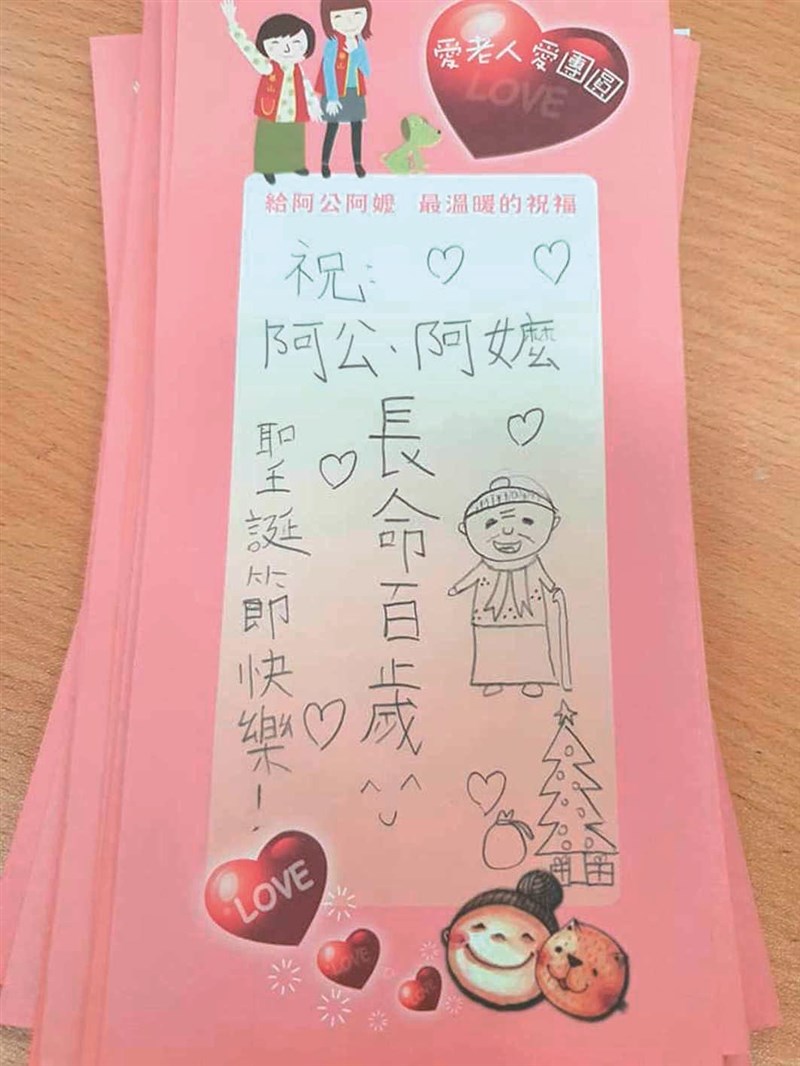 愛老人愛團圓
LOVE
給阿公阿嬤 最溫暖的祝福
祝:
阿公、阿嬤
長命百歲
聖誕節快樂!
LOVE
LOVE
LOVE